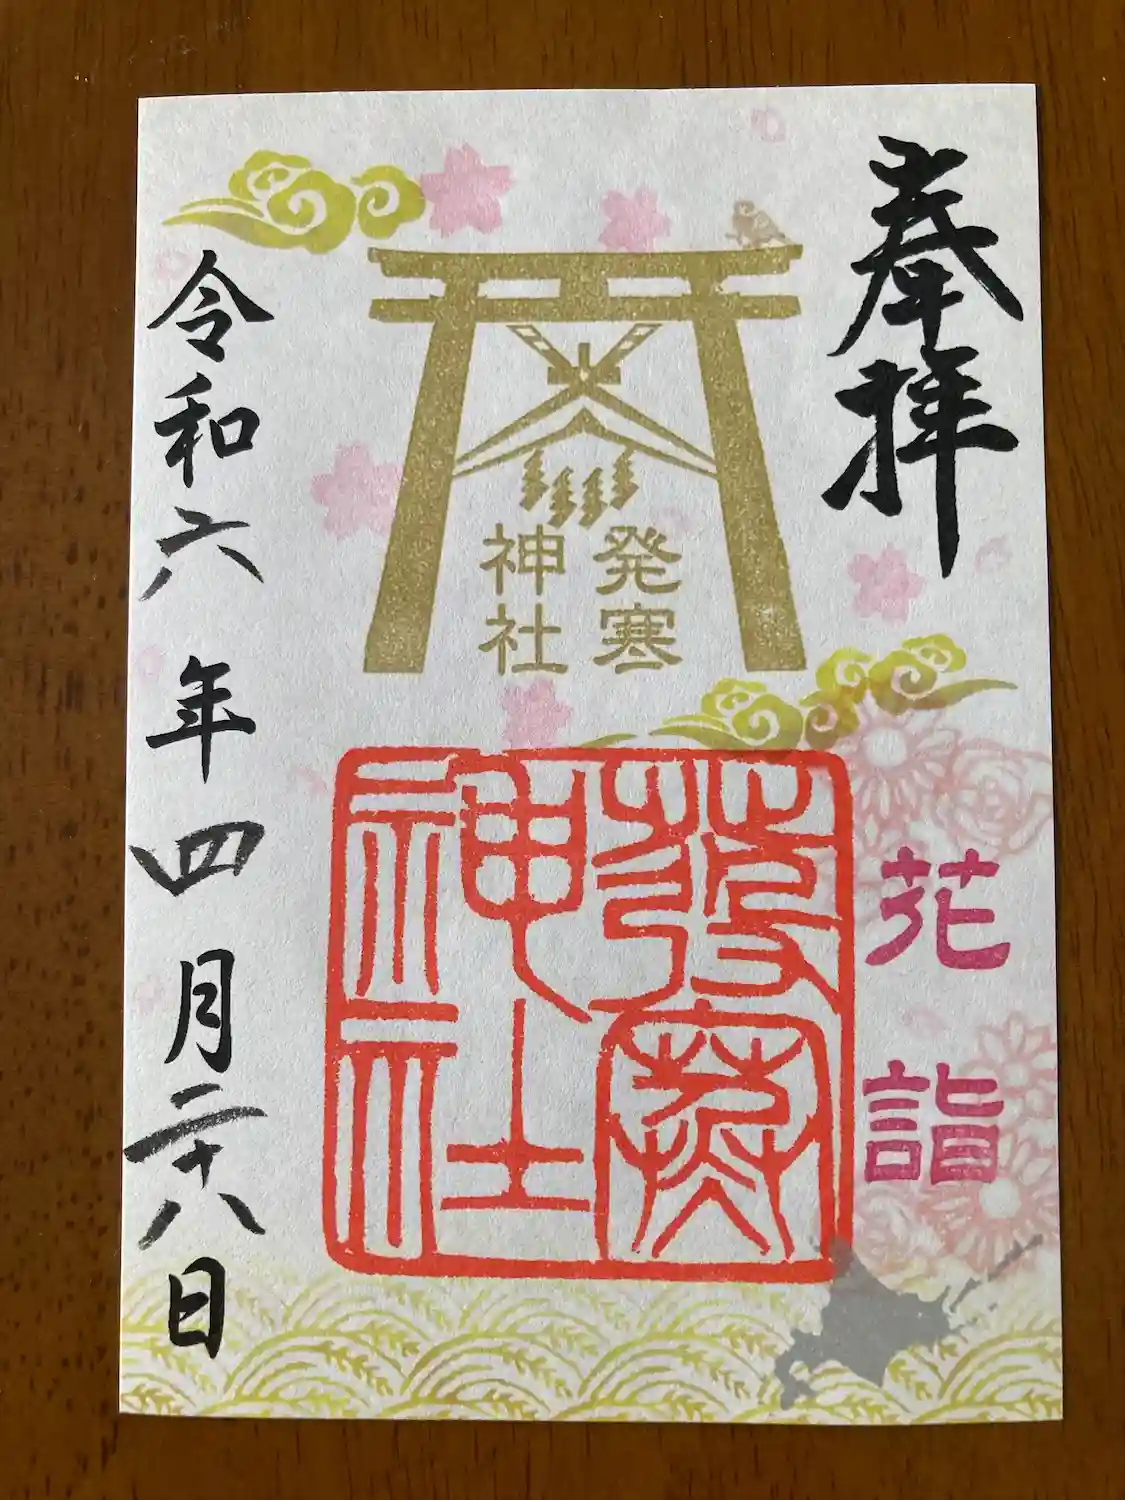 奉拝
発寒
神社
花詣
発寒
神社
令和六年四月二十八日